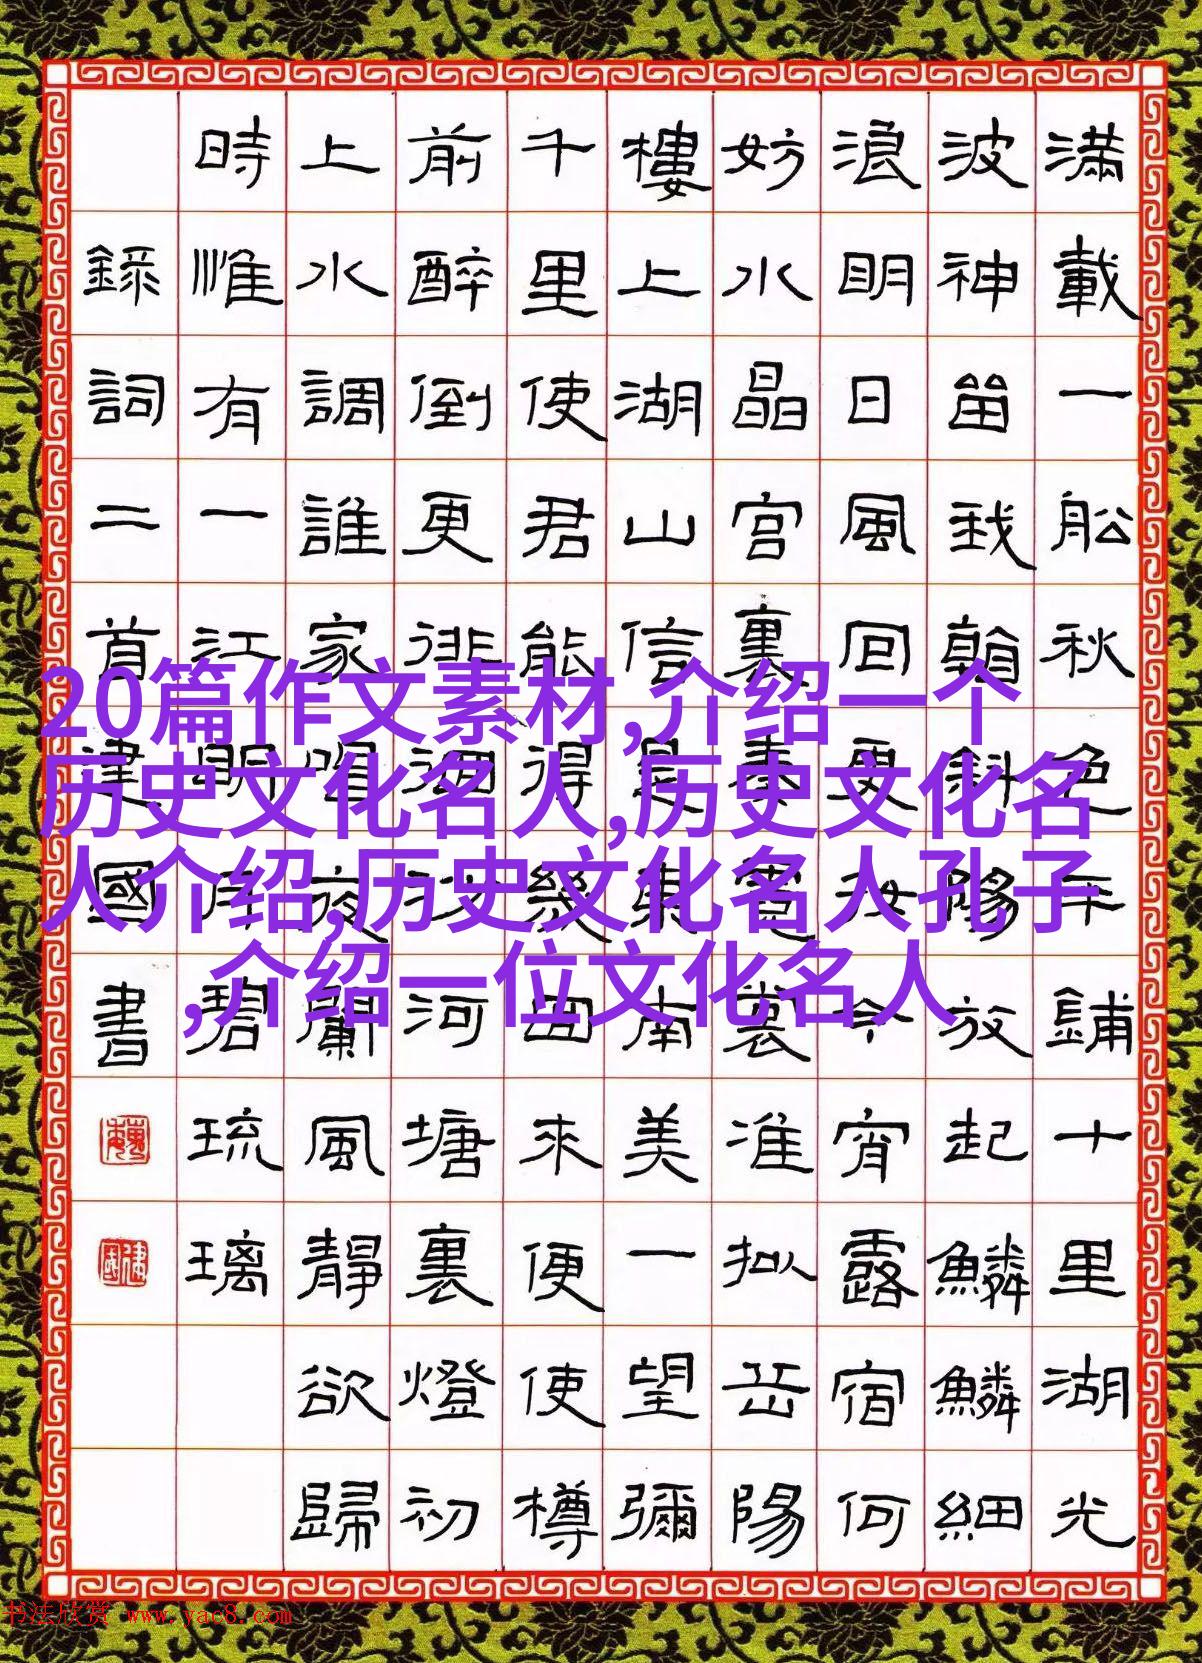 滿載一船秋色平鋪十里湖光
波神留我看斜陽放起鱗鱗細
浪明日風回更好今宵露宿何
妨水晶宮裏奏霓裳准擬岳陽
樓上湖山信是東南美一望彌
千里使君能得幾回來便使樽
前醉倒更徘徊沙河塘裏燈初
上水調誰家唱夜闌風靜欲歸
時惟有一江明月碧琉璃
錄詞二首建國書
20篇作文素材,介绍一个
历史文化名人,历史文化名
人介绍,历史文化名人孔子
,介绍一位文化名人
书法欣赏 www.yac8.com